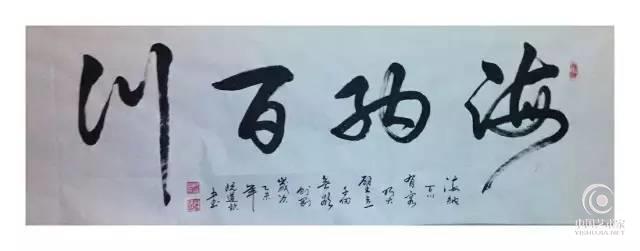 海纳百川
海纳
百川
有容
乃大
壁立
千仞
无欲
则刚
岁次
乙未
年
中国艺术家
YISHUJIA.NET